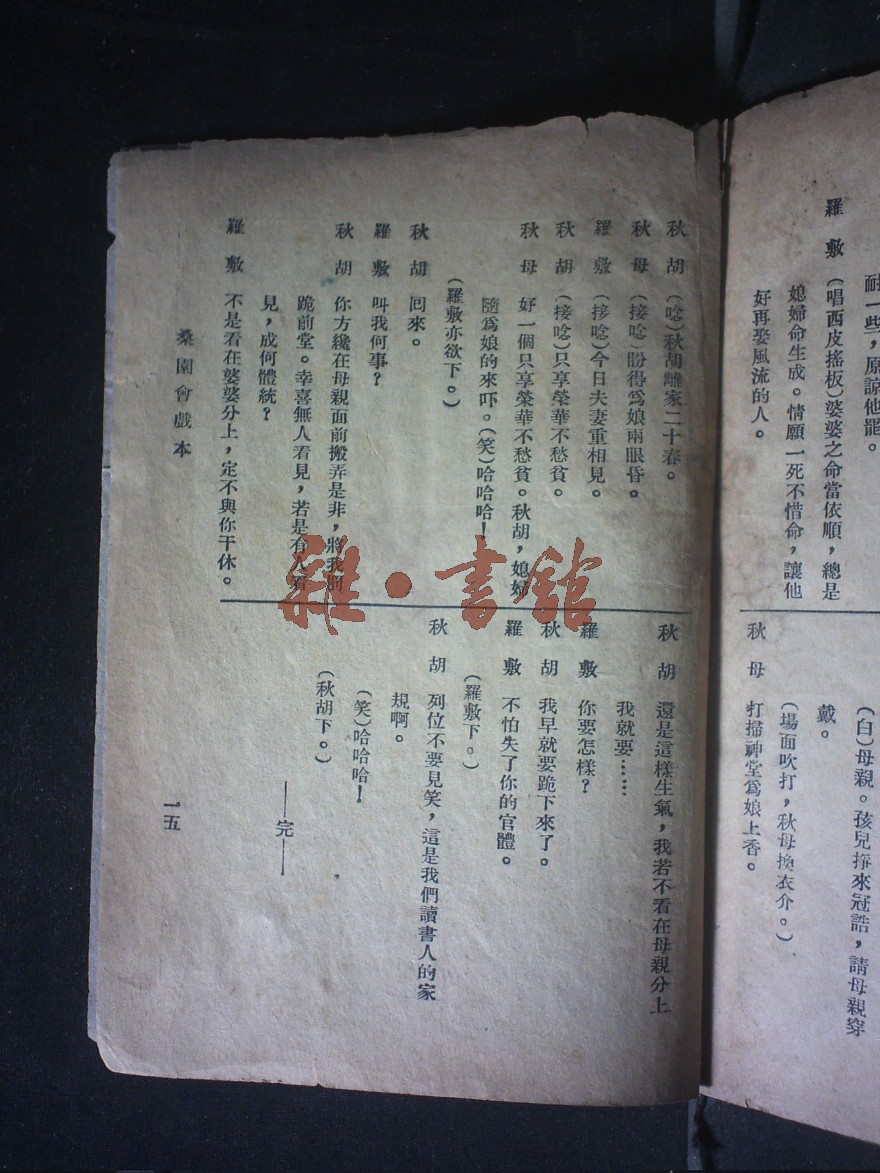 耐一些，原諒他罷。
羅　敷　（唱西皮搖板）婆婆之命當依順，總是
媳婦命生成。情願一死不惜命，讓他
好再娶風流的人。
（白）母親。孩兒掙來冠誥，請母親穿
戴。
（場面吹打，秋母換衣介。）
秋　母　打掃神堂爲娘上香。
秋　胡　（唸）秋胡離家二十春。
秋　母　（接唸）盼得爲娘兩眼昏。
羅　敷　（接唸）今日夫妻重相見。
秋　胡　（接唸）只享榮華不愁貧。
秋　母　好一個只享榮華不愁貧。秋胡，媳婦
隨爲娘的來吓。（笑）哈哈哈！
（羅敷亦欲下。）
秋　胡　回來。
羅　敷　叫我何事？
秋　胡　你方纔在母親面前搬弄是非，將我罰
跪前堂。幸喜無人看見，若是有人看
見，成何體統？
羅　敷　不是看在婆婆分上，定不與你干休。
秋　胡　還是這樣生氣，我若不看在母親分上
我就要……
羅　敷　你要怎樣？
秋　胡　我早就要跪下來了。
羅　敷　不怕失了你的官體。
（羅敷下。）
秋　胡　列位不要見笑，這是我們讀書人的家
規啊。
（笑）哈哈哈！
（秋胡下。）
——完——
桑園會戲本
一五
雜·書館